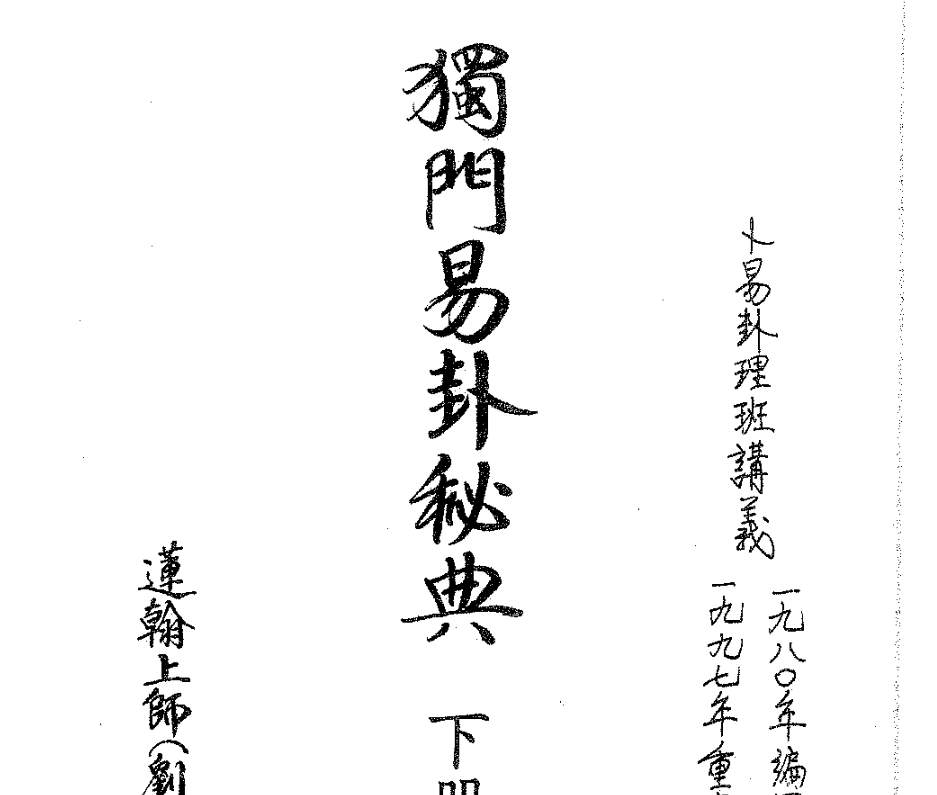 卜易卦理班講義
一九八〇年編
一九九七年重
獨門易卦秘典 下
蓮翰上師（劉